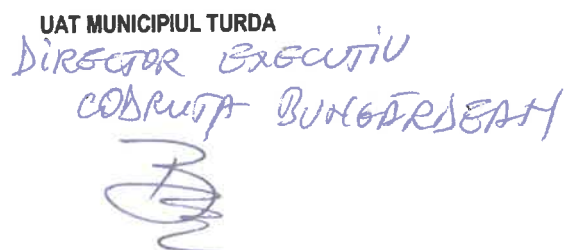 UAT MUNICIPIUL TURDA
DIRECTOR EXECUTIV
CODRUȚA BUNGĂRDEAN